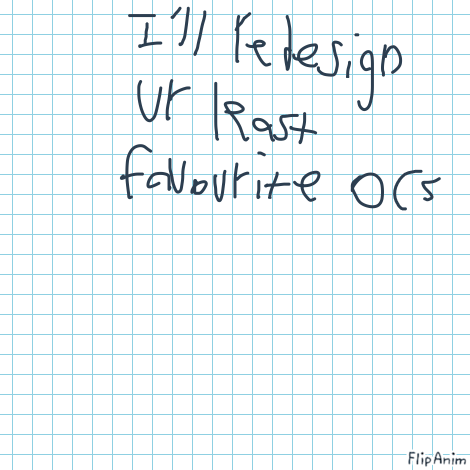 I'll redesign
ur least
favourite OCs
FlipAnim